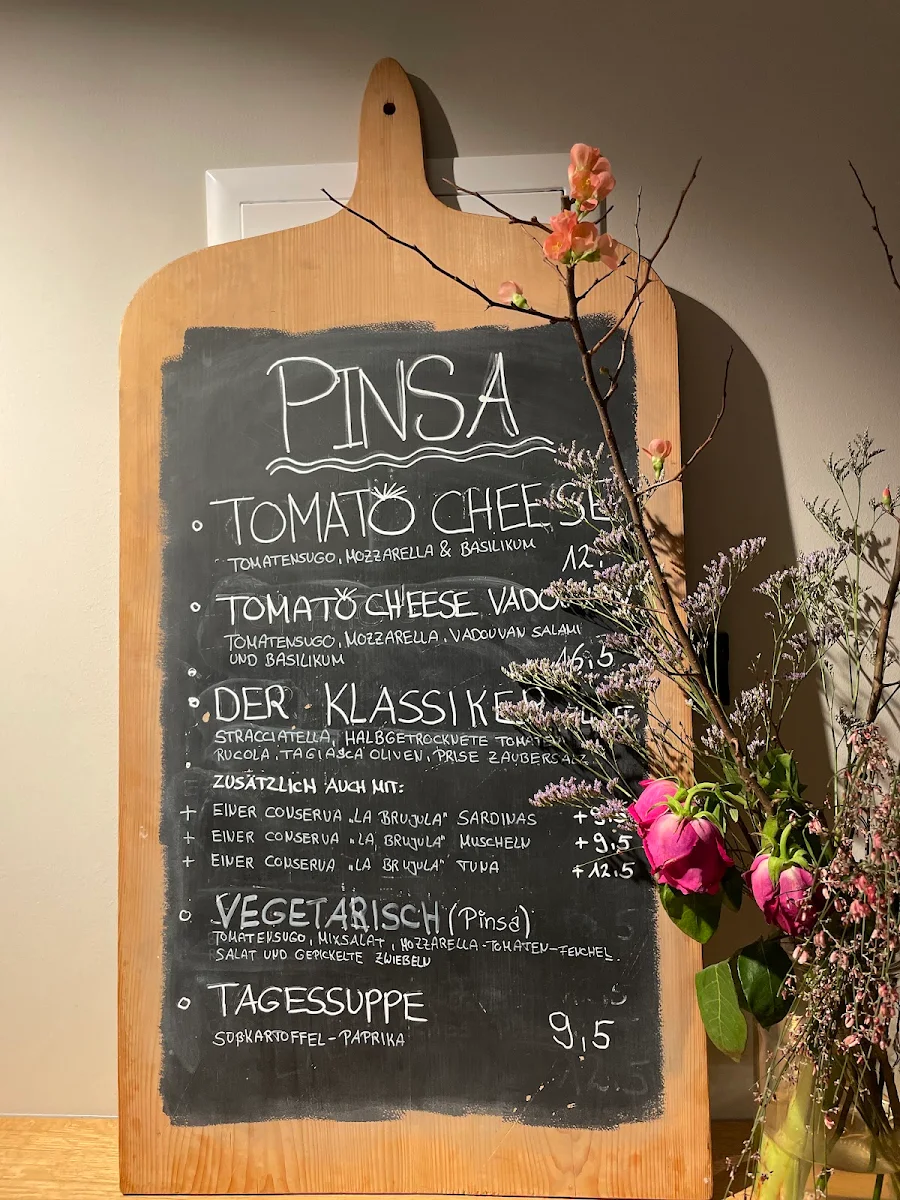 PINSA
TOMATO CHEESE
TOMATENSUGO, MOZZARELLA & BASILIKUM
12,
TOMATO CHEESE
TOMATENSUGO, MOZZARELLA, VADOUVAN SALAMI
UND BASILIKUM
16,5
DER KLASSIKER
STRACCIATELLA, HALBGETROCKNETE
RUCOLA, TAGIASCA OLIVEN, PRISE ZAUBERSALZ
ZUSÄTZLICH AUCH MIT:
+ EINER CONSERVA „LA BRUJULA" SARDINAS
+ EINER CONSERVA „LA BRUJULA" MUSCHELN +9,5
+ EINER CONSERVA „LA BRUJULA" TUNA +12,5
VEGETARISCH (Pinsa)
TOMATENSUGO, MIXSALAT, MOZZARELLA-TOMATEN-FENCHEL.
SALAT UND GEPICKELTE ZWIEBELN
TAGESSUPPE
SÜßKARTOFFEL-PAPRIKA
9,5